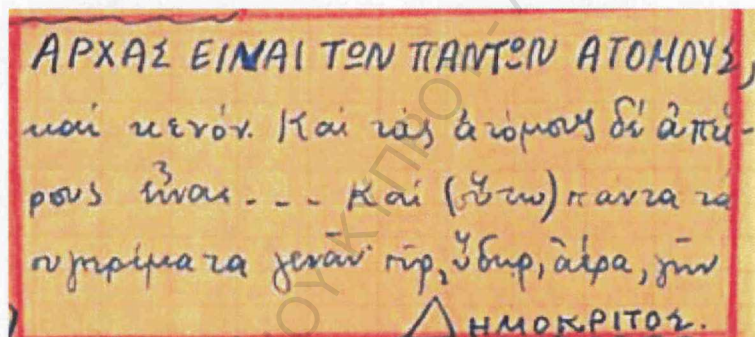 ΑΡΧΑΣ ΕΙΝΑΙ ΤΩΝ ΠΑΝΤΩΝ ΑΤΟΜΟΥΣ,
καί κενόν. Καί τάς ἀτόμους δέ ἀπεί-
ρους εἶναι... Καί (οὕτω) πάντα τά
συγκρίματα γενᾶν πῦρ, ὕδωρ, ἀέρα, γῆν
ΔΗΜΟΚΡΙΤΟΣ.